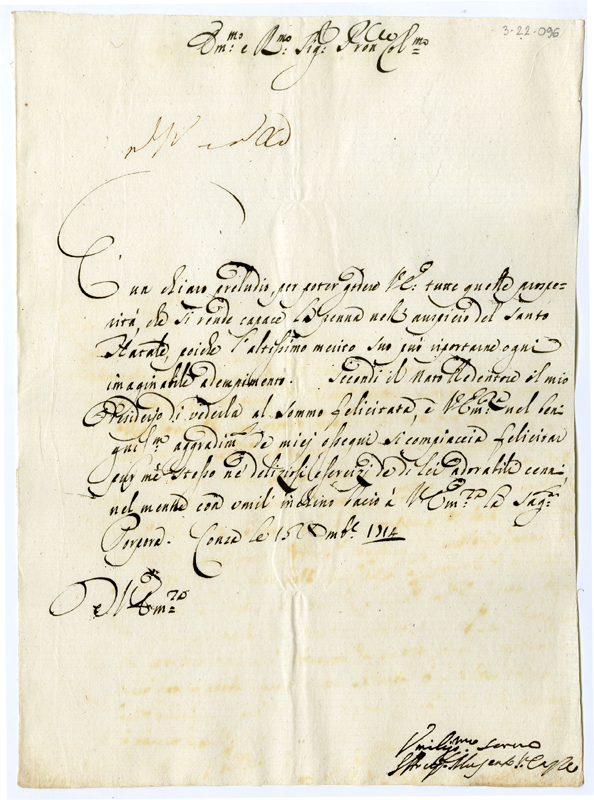 3-22-096
Em:mo e R:mo Sig:r Pron Col:mo
È un chiaro preludio, per poter godere V.E: tutte quelle prospe-
rità, che si rende capace la penna nell'auspicio del Santo
Natale, poiche l'altissimo merito suo può riportarne ogni
imaginabile adempimento. Secondi il Nato Redentore il mio
desiderio di vederla al sommo felicitata, e V.Em:za nel ben-
gnis:mo aggradim:to de miei ossequi si compiaccia felicitar
pur me stesso ne' deliziosi esercizi de di lei adorabili cenni,
nel mentre con umil' inchino bacio à V.Em:za la Sag:ra
Porpora. Conza le 15 Xmb:e 1714
Di V.Em:za
Umiliss:mo servo